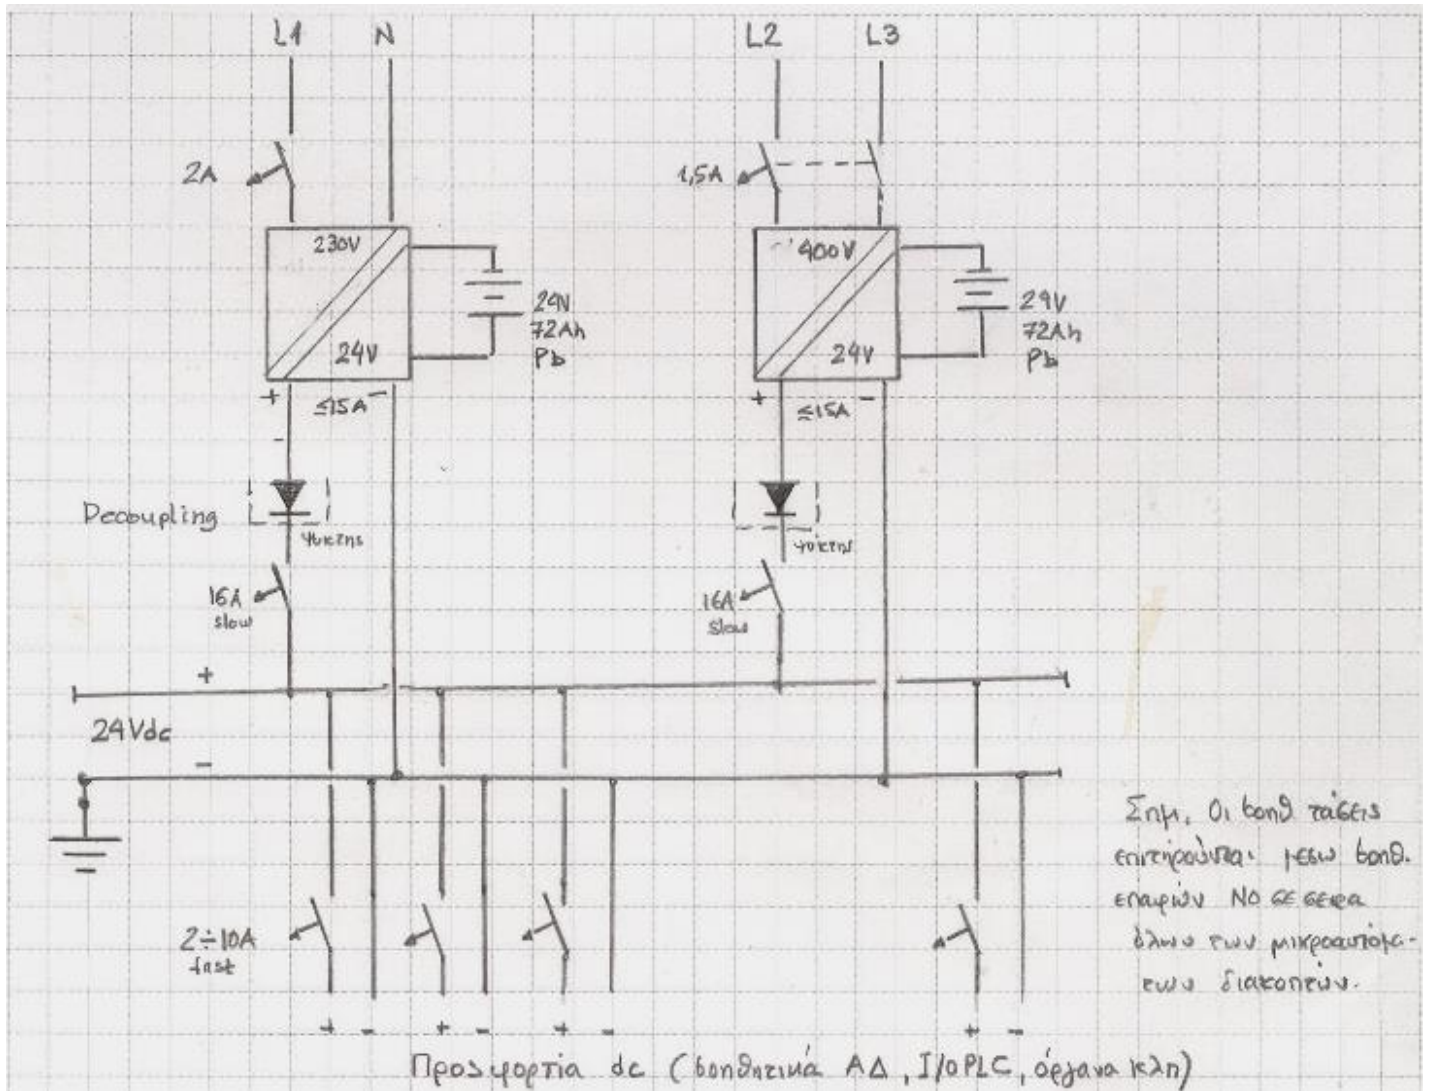 L1 N L2 L3
2A 1,5A
230V 400V
24V
72Ah
Pb
29V
72Ah
Pb
24V 24V
+ ≤15A - + ≤15A -
Decoupling
ψύκτης ψύκτης
16A
slow
16A
slow
+
24Vdc
-
Σημ. Οι βοηθ τάσεις
επιτηρούνται μεσω βοηθ.
επαφών NO σε σειρα
όλων των μικροαυτόμα-
των διακοπτών.
2÷10A
fast
+ - + - + - + -
Προς φορτία dc (βοηθητικά ΑΔ, I/O PLC, όργανα κλπ)